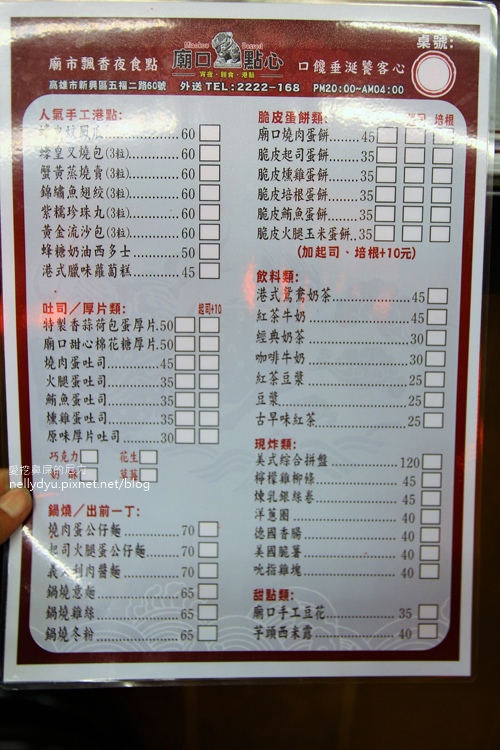 桌號:
Miaokou Dessert
廟市飄香夜食點 廟口點心 口饞垂涎饕客心
宵夜·輕食·港點
高雄市新興區五福二路60號 外送TEL:2222-168 PM20:00~AM04:00
人氣手工港點:
60
蠔皇叉燒包(3粒) 60
蟹黃蒸燒賣(3粒) 60
錦繡魚翅餃(3粒) 60
紫糯珍珠丸(3粒) 60
黃金流沙包(3粒) 60
蜂糖奶油西多士 50
港式臘味蘿蔔糕 45
吐司/厚片類: 起司+10
特製香蒜荷包蛋厚片.50
廟口甜心棉花糖厚片.50
燒肉蛋吐司 45
火腿蛋吐司 35
鮪魚蛋吐司 35
燻雞蛋吐司 35
原味厚片吐司 30
巧克力 花生
nellydyu.pixnet.net/blog
鍋燒/出前一丁:
燒肉蛋公仔麵 70
起司火腿蛋公仔麵 70
義大利肉醬麵 70
鍋燒意麵 65
鍋燒雞絲 65
鍋燒冬粉 65
脆皮蛋餅類: 起司 培根
廟口燒肉蛋餅 45
脆皮起司蛋餅 35
脆皮燻雞蛋餅 35
脆皮培根蛋餅 35
脆皮鮪魚蛋餅 35
脆皮火腿玉米蛋餅 35
(加起司、培根+10元)
飲料類:
港式鴛鴦奶茶 45
紅茶牛奶 45
經典奶茶 30
咖啡牛奶 30
紅茶豆漿 25
豆漿 25
古早味紅茶 25
現炸類:
美式綜合拼盤 120
檸檬雞柳條 45
煉乳銀絲卷 45
洋蔥圈 40
德國香腸 40
美國脆薯 40
吮指雞塊 40
甜點類:
廟口手工豆花 35
芋頭西米露 40